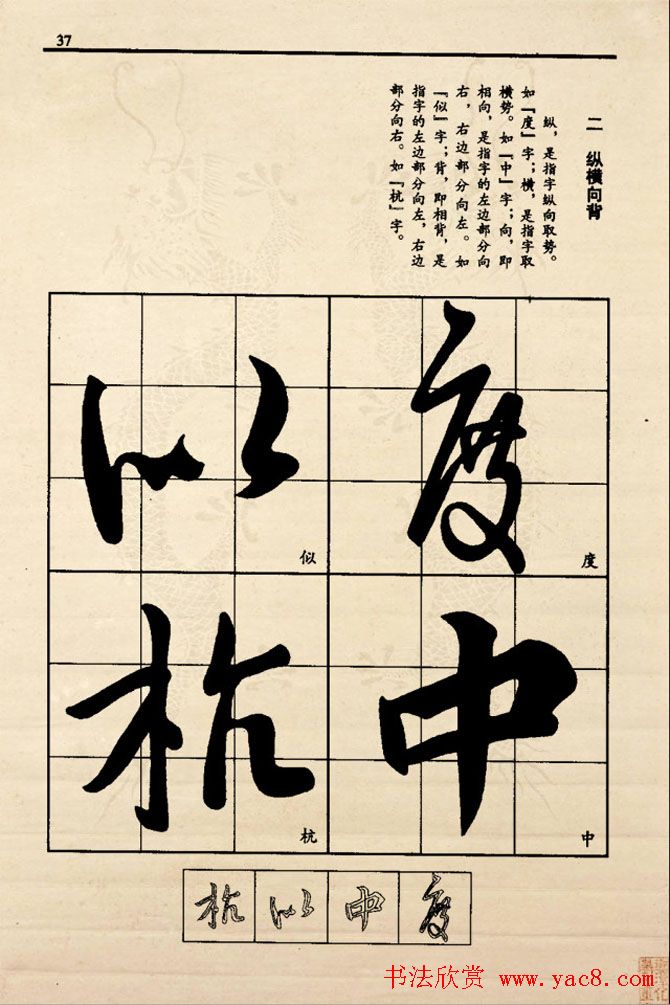 37
二 纵横向背
纵，是指字纵向取势。
如『度』字；横，是指字取
横势。如『中』字；向，即
相向，是指字的左边部分向
右，右边部分向左。如
『似』字；背，即相背，是
指字的左边部分向左，右边
部分向右。如『杭』字。
度
度
中
中
似
似
杭
杭
度中似杭
书法欣赏 www.yac8.com